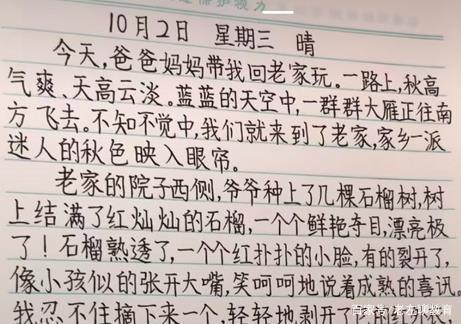 保护视力
10月2日 星期三 晴
今天,爸爸妈妈带我回老家玩。一路上,秋高
气爽、天高云淡。蓝蓝的天空中,一群群大雁正往南
方飞去。不知不觉中,我们就来到了老家,家乡一派
迷人的秋色映入眼帘。
老家的院子西侧,爷爷种上了几棵石榴树,树
上结满了红灿灿的石榴,一个个鲜艳夺目,漂亮极
了!石榴熟透了,一个个红扑扑的小脸,有的裂开了,
像小孩似的张开大嘴,笑呵呵地说着成熟的喜讯。
我忍不住摘下来一个,轻轻地剥开了它的红外衣,
百家号/老左镇教育